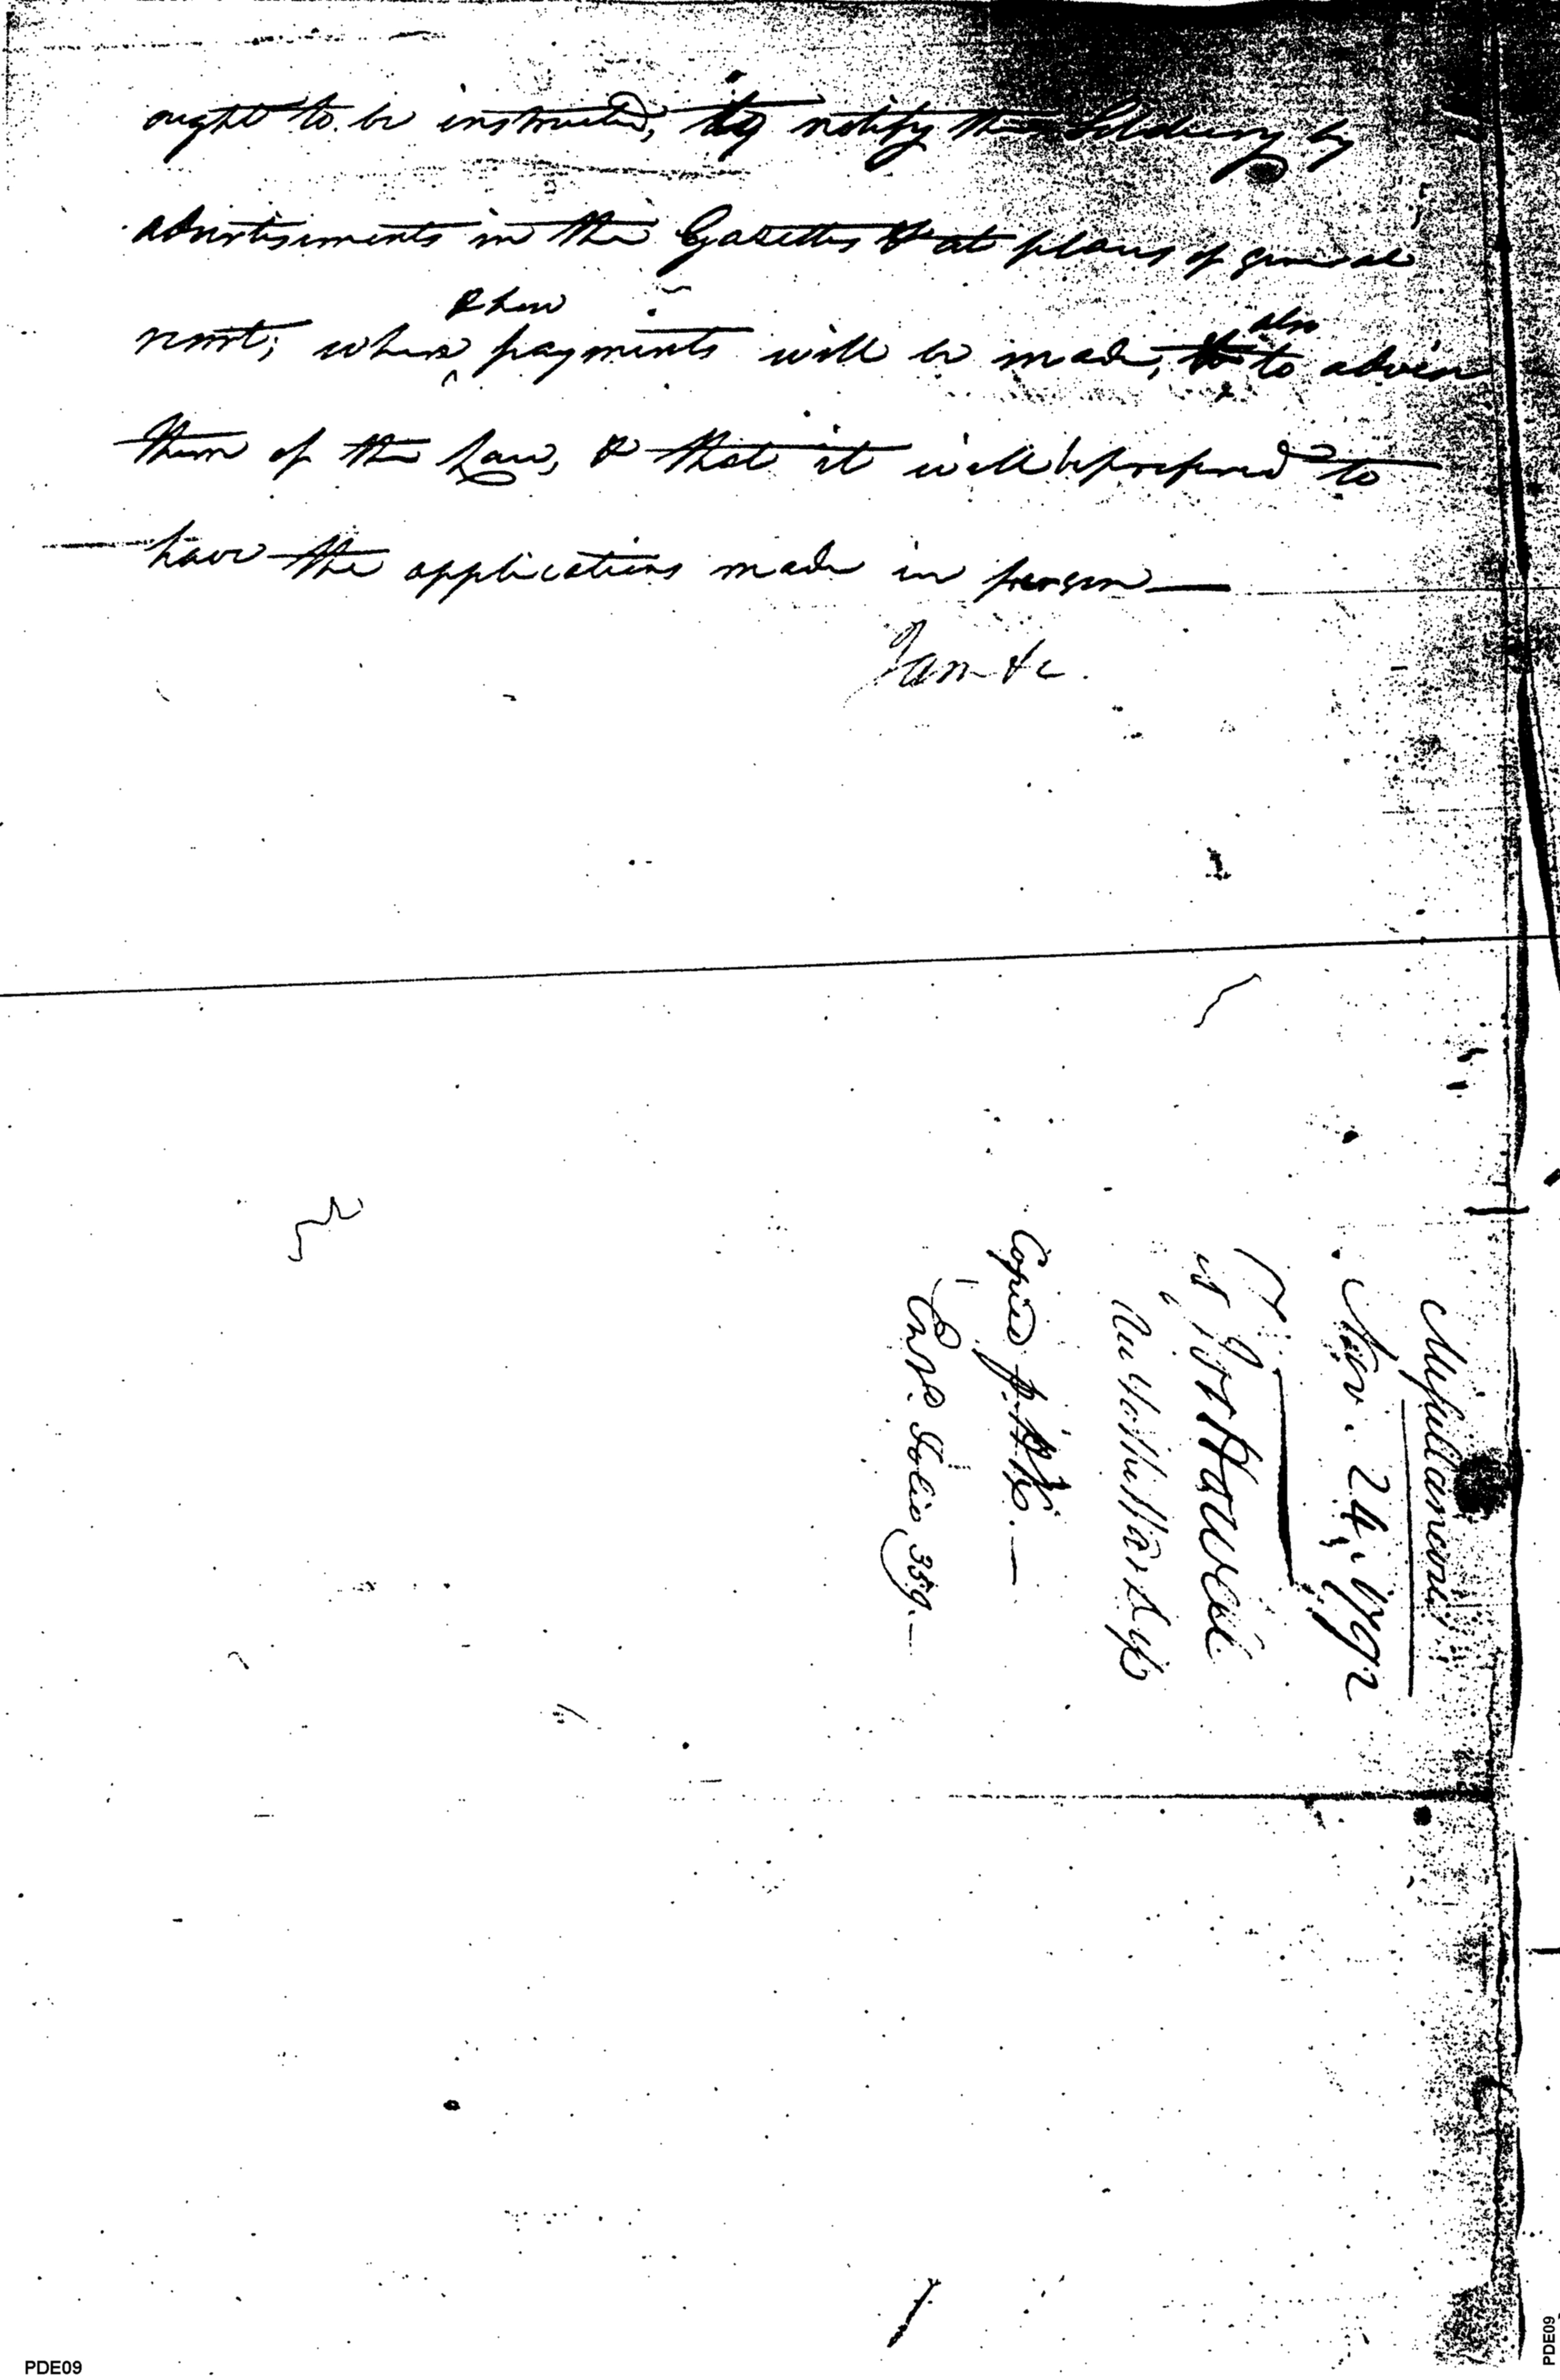 ought to be instructed, to notify the Soldiery by
advertisements in the Gazettes & at places of general
& how
resort; where payments will be made, also to advise
them of the Law, & that it will be prefered to
have the applications made in person—
I am &c.
Miscellaneous
Nov. 24. 1792
Jos Howell
Copied
Entd. Folio 359.—
PDE09
PDE09